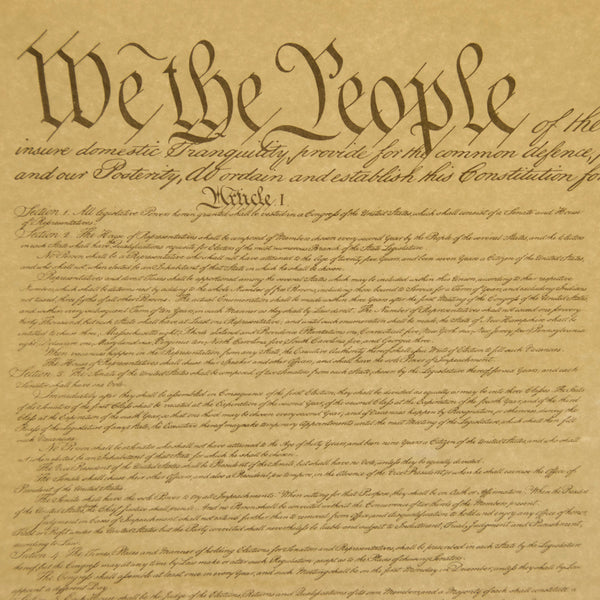 We the People of the
insure domestic Tranquility, provide for the common defence,
and our Posterity, do ordain and establish this Constitution for
Article I
Section 1. All legislative Powers herein granted shall be vested in a Congress of the United States, which shall consist of a Senate and House
of Representatives.
Section 2. The House of Representatives shall be composed of Members chosen every second Year by the People of the several States, and the Electors
in each State shall have the Qualifications requisite for Electors of the most numerous Branch of the State Legislature.
No Person shall be a Representative who shall not have attained to the Age of twenty five Years, and been seven Years a Citizen of the United States,
and who shall not, when elected, be an Inhabitant of that State in which he shall be chosen.
Representatives and direct Taxes shall be apportioned among the several States which may be included within this Union, according to their respective
Numbers, which shall be determined by adding to the whole Number of free Persons, including those bound to Service for a Term of Years, and excluding Indians
not taxed, three fifths of all other Persons. The actual Enumeration shall be made within three Years after the first Meeting of the Congress of the United States,
and within every subsequent Term of ten Years, in such Manner as they shall by Law direct. The Number of Representatives shall not exceed one for every
thirty Thousand, but each State shall have at Least one Representative; and until such enumeration shall be made, the State of New Hampshire shall be
entitled to chuse three, Massachusetts eight, Rhode Island and Providence Plantations one, Connecticut five, New York six, New Jersey four, Pennsylvania
eight, Delaware one, Maryland six, Virginia ten, North Carolina five, South Carolina five, and Georgia three.
When vacancies happen in the Representation from any State, the Executive Authority thereof shall issue Writs of Election to fill such Vacancies.
The House of Representatives shall chuse their Speaker and other Officers; and shall have the sole Power of Impeachment.
Section 3. The Senate of the United States shall be composed of two Senators from each State, chosen by the Legislature thereof, for six Years; and each
Senator shall have one Vote.
Immediately after they shall be assembled in Consequence of the first Election, they shall be divided as equally as may be into three Classes. The Seats
of the Senators of the first Class shall be vacated at the Expiration of the second Year, of the second Class at the Expiration of the fourth Year, and of the third
Class at the Expiration of the sixth Year, so that one third may be chosen every second Year; and if Vacancies happen by Resignation, or otherwise, during the
Recess of the Legislature of any State, the Executive thereof may make temporary Appointments until the next Meeting of the Legislature, which shall then fill
such Vacancies.
No Person shall be a Senator who shall not have attained to the Age of thirty Years, and been nine Years a Citizen of the United States, and who shall
not, when elected, be an Inhabitant of that State for which he shall be chosen.
The Vice President of the United States shall be President of the Senate, but shall have no Vote, unless they be equally divided.
The Senate shall chuse their other Officers, and also a President pro tempore, in the Absence of the Vice President, or when he shall exercise the Office of
President of the United States.
The Senate shall have the sole Power to try all Impeachments. When sitting for that Purpose, they shall be on Oath or Affirmation. When the President
of the United States is tried, the Chief Justice shall preside: And no Person shall be convicted without the Concurrence of two thirds of the Members present.
Judgment in Cases of Impeachment shall not extend further than to removal from Office, and disqualification to hold and enjoy any Office of honor,
Trust or Profit under the United States: but the Party convicted shall nevertheless be liable and subject to Indictment, Trial, Judgment and Punishment,
according to Law.
Section 4. The Times, Places and Manner of holding Elections for Senators and Representatives, shall be prescribed in each State by the Legislature
thereof; but the Congress may at any time by Law make or alter such Regulations, except as to the Places of chusing Senators.
The Congress shall assemble at least once in every Year, and such Meeting shall be on the first Monday in December, unless they shall by Law
appoint a different Day.
House shall be the Judge of the Elections, Returns and Qualifications of its own Members, and a Majority of each shall constitute a